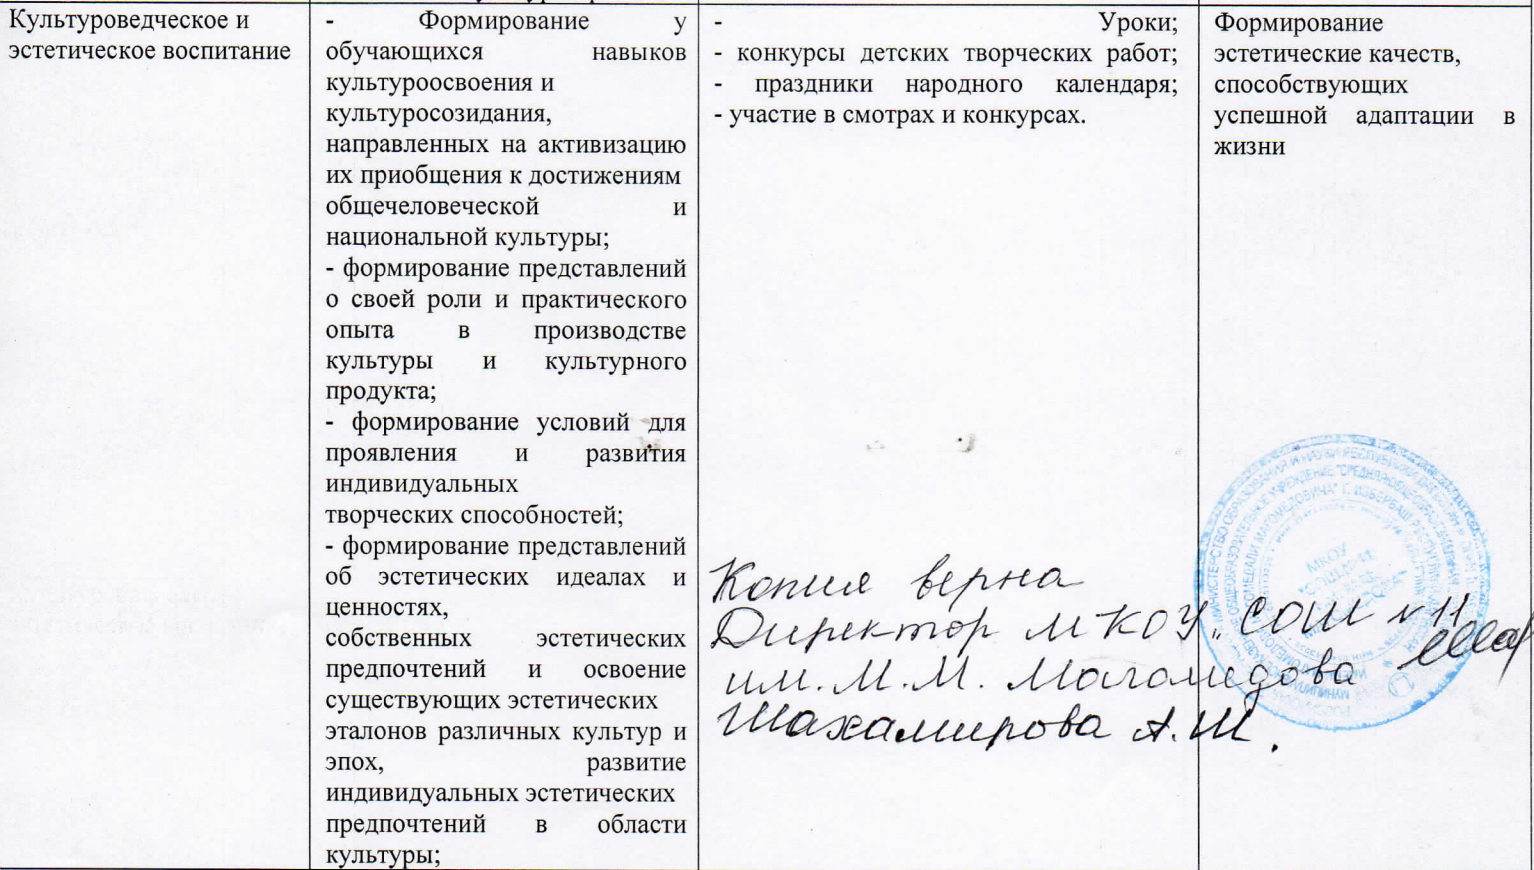 Культуроведческое и
эстетическое воспитание
- Формирование у
обучающихся навыков
культуроосвоения и
культуросозидания,
направленных на активизацию
их приобщения к достижениям
общечеловеческой и
национальной культуры;
- формирование представлений
о своей роли и практического
опыта в производстве
культуры и культурного
продукта;
- формирование условий для
проявления и развития
индивидуальных
творческих способностей;
- формирование представлений
об эстетических идеалах и
ценностях,
собственных эстетических
предпочтений и освоение
существующих эстетических
эталонов различных культур и
эпох, развитие
индивидуальных эстетических
предпочтений в области
культуры;
- Уроки;
- конкурсы детских творческих работ;
- праздники народного календаря;
- участие в смотрах и конкурсах.
Формирование
эстетические качеств,
способствующих
успешной адаптации в
жизни
Копия верна
Директор МКОУ „СОШ №11
им. М.М. Магомедова
Шахамирова А.Ш.
МКОУ